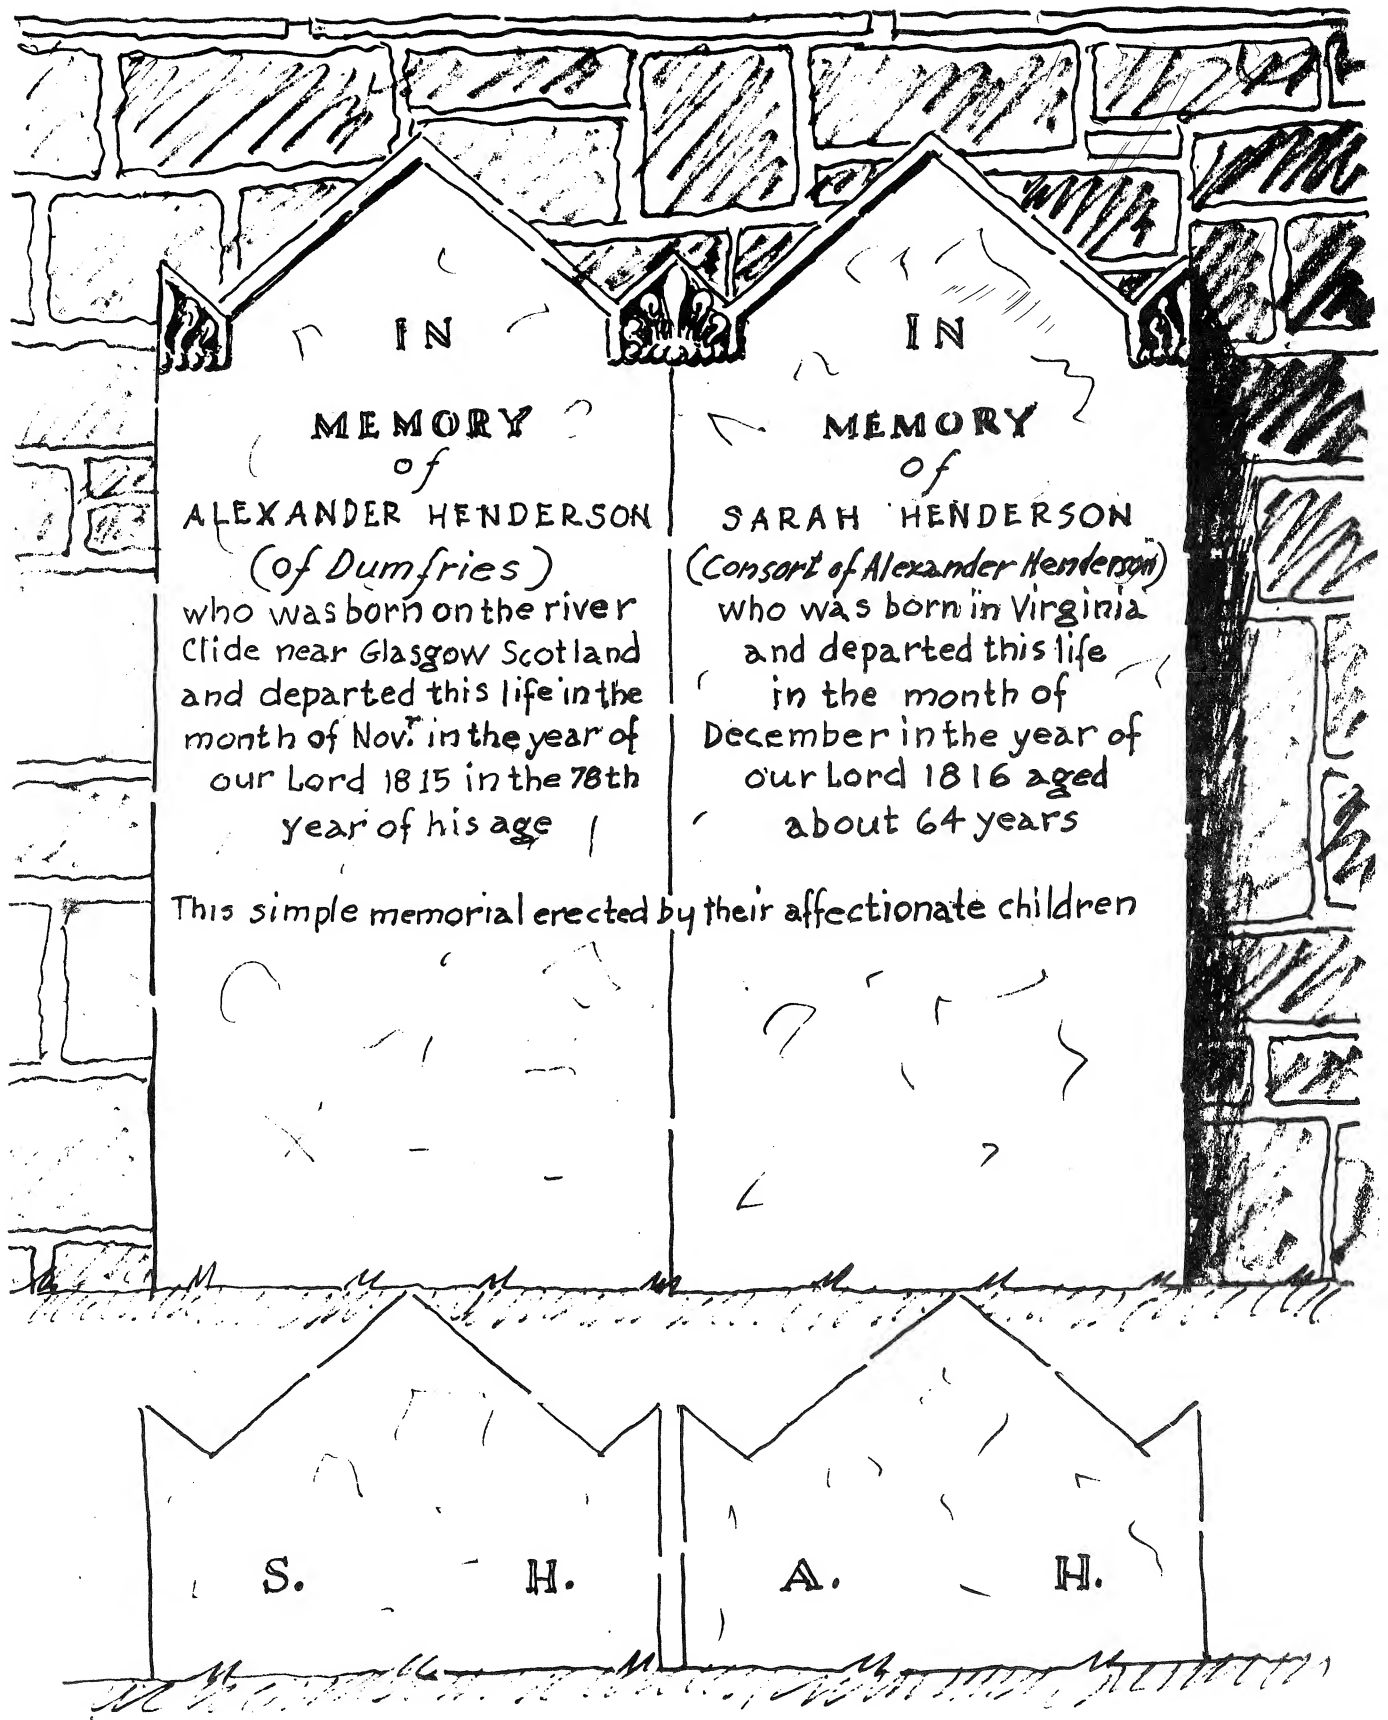 IN
MEMORY
of
ALEXANDER HENDERSON
(of Dumfries)
who was born on the river
Clide near Glasgow Scotland
and departed this life in the
month of Novr. in the year of
our Lord 1815 in the 78th
year of his age
IN
MEMORY
of
SARAH HENDERSON
(Consort of Alexander Henderson)
who was born in Virginia
and departed this life
in the month of
December in the year of
our Lord 1816 aged
about 64 years
This simple memorial erected by their affectionate children
S. H.
A. H.